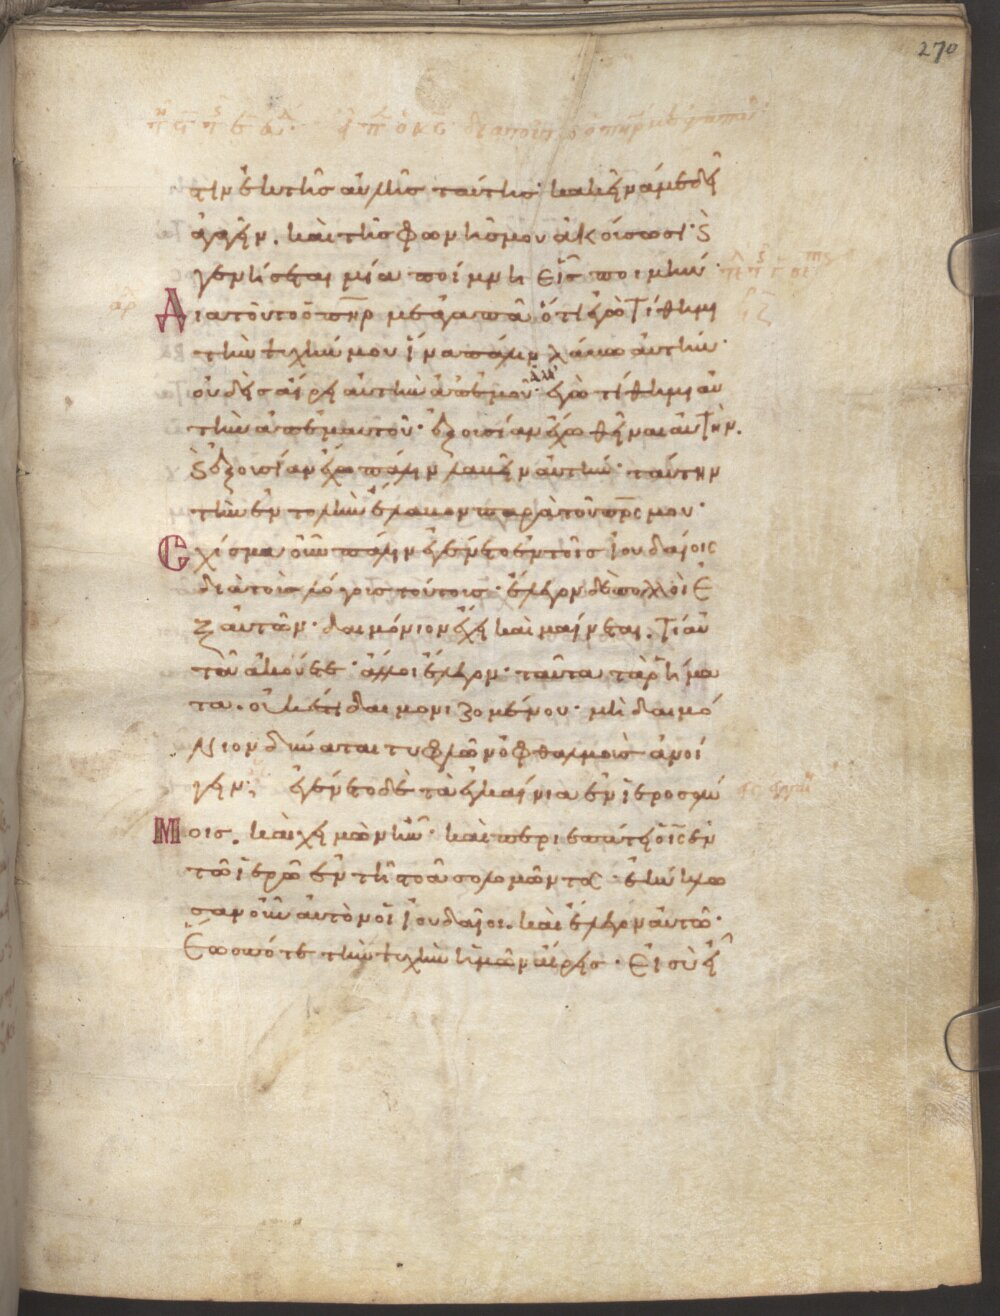 270
στιν ἐκ τῆς αὐλῆς ταύτης· κακεῖνά με δεῖ
ἀγαγεῖν. καὶ τῆς φωνῆς μου ἀκούσωσι· ϗ
γενήσεται μία ποίμνη εἷς ποιμήν·
Διατοῦτο ὁ πηρ με ἀγαπᾶ ὅτι ἐγὼ τίθημι
τὴν ψυχήν μου ἵνα πάλιν λάβω αὐτήν·
οὐδεὶς αἴρει αὐτὴν ἀπ' ἐμοῦ· ἀλλ' ἐγὼ τίθημι αὐ
τὴν ἀπ' ἐμαυτοῦ· ἐξουσίαν ἔχω θεῖναι αὐτὴν.
ϗ ἐξουσίαν ἔχω πάλιν λαβεῖν αὐτήν· ταύτην
τὴν ἐντολὴν ἔλαβον παρὰ τοῦ πρς μου·
Σχίσμα οὖν πάλιν ἐγένετο ἐν τοῖς ἰουδαίοις
διὰ τοὺς λόγους τούτους· ἔλεγον δὲ πολλοὶ ἐ
ξ αὐτῶν· δαιμόνιον ἔχει καὶ μαίνεται. τί αὐ
τοῦ ἀκούετε· ἄλλοι ἔλεγον· ταῦτα τὰ ῥήμα
τα. οὐκ ἔστι δαιμονιζομένου· μὴ δαιμό
νιον δύναται τυφλῶν ὀφθαλμοὺς ἀνοί
γειν· ἐγένετο δὲ τὰ ἐγκαίνια ἐν ἱεροσολύ
Μοις. καὶ χειμὼν ἦν· καὶ περιεπάτει ὁ ις ἐν
τῶ ἱερῶ ἐν τῆ στοᾶ σολομῶντος· ἐκύκλω
σαν οὖν αὐτὸν οἱ ἰουδαῖοι. καὶ ἔλεγον αὐτῶ·
Ἕως πότε τὴν ψυχὴν ἡμῶν αἴρεις· Εἰ σὺ εἶ